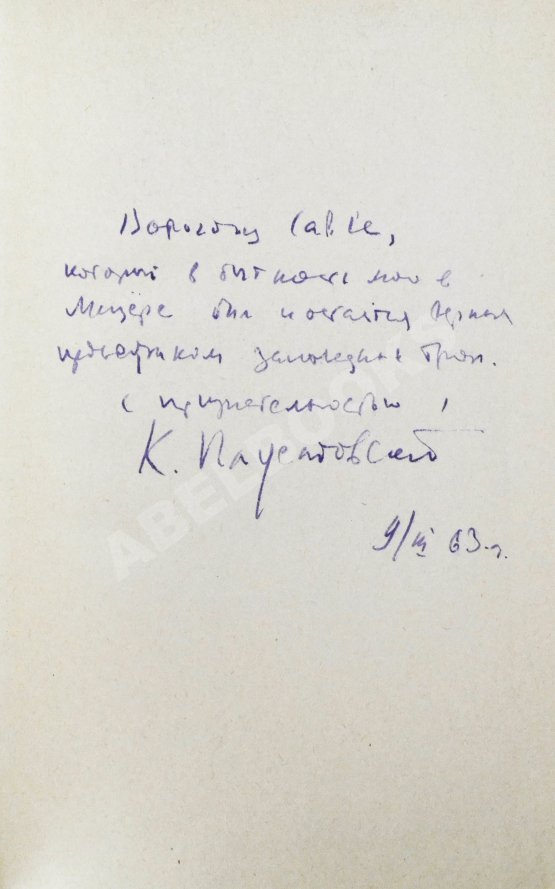 Дорогому Савве,
который в бытность мою в
Мещёре был и остается верным
проводником заповедных троп.
С признательностью,
К. Паустовский
9/III 63 г.
ABELBOOKS